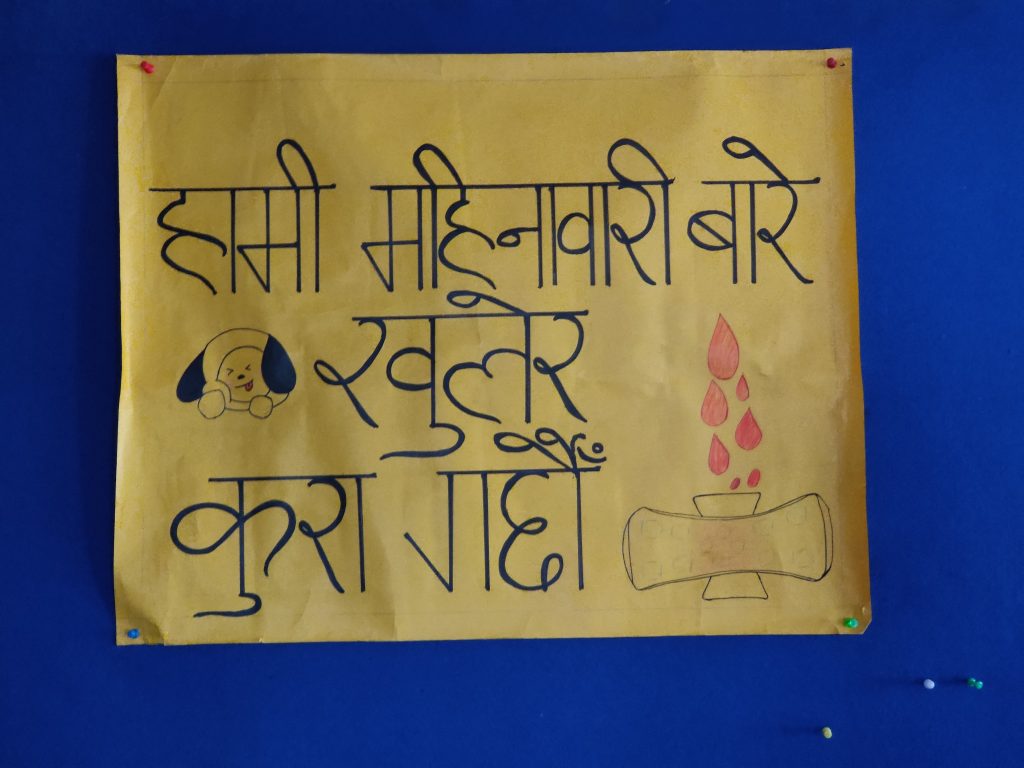 हामी महिनावारी बारे
खुलेर
कुरा गर्दछौँ